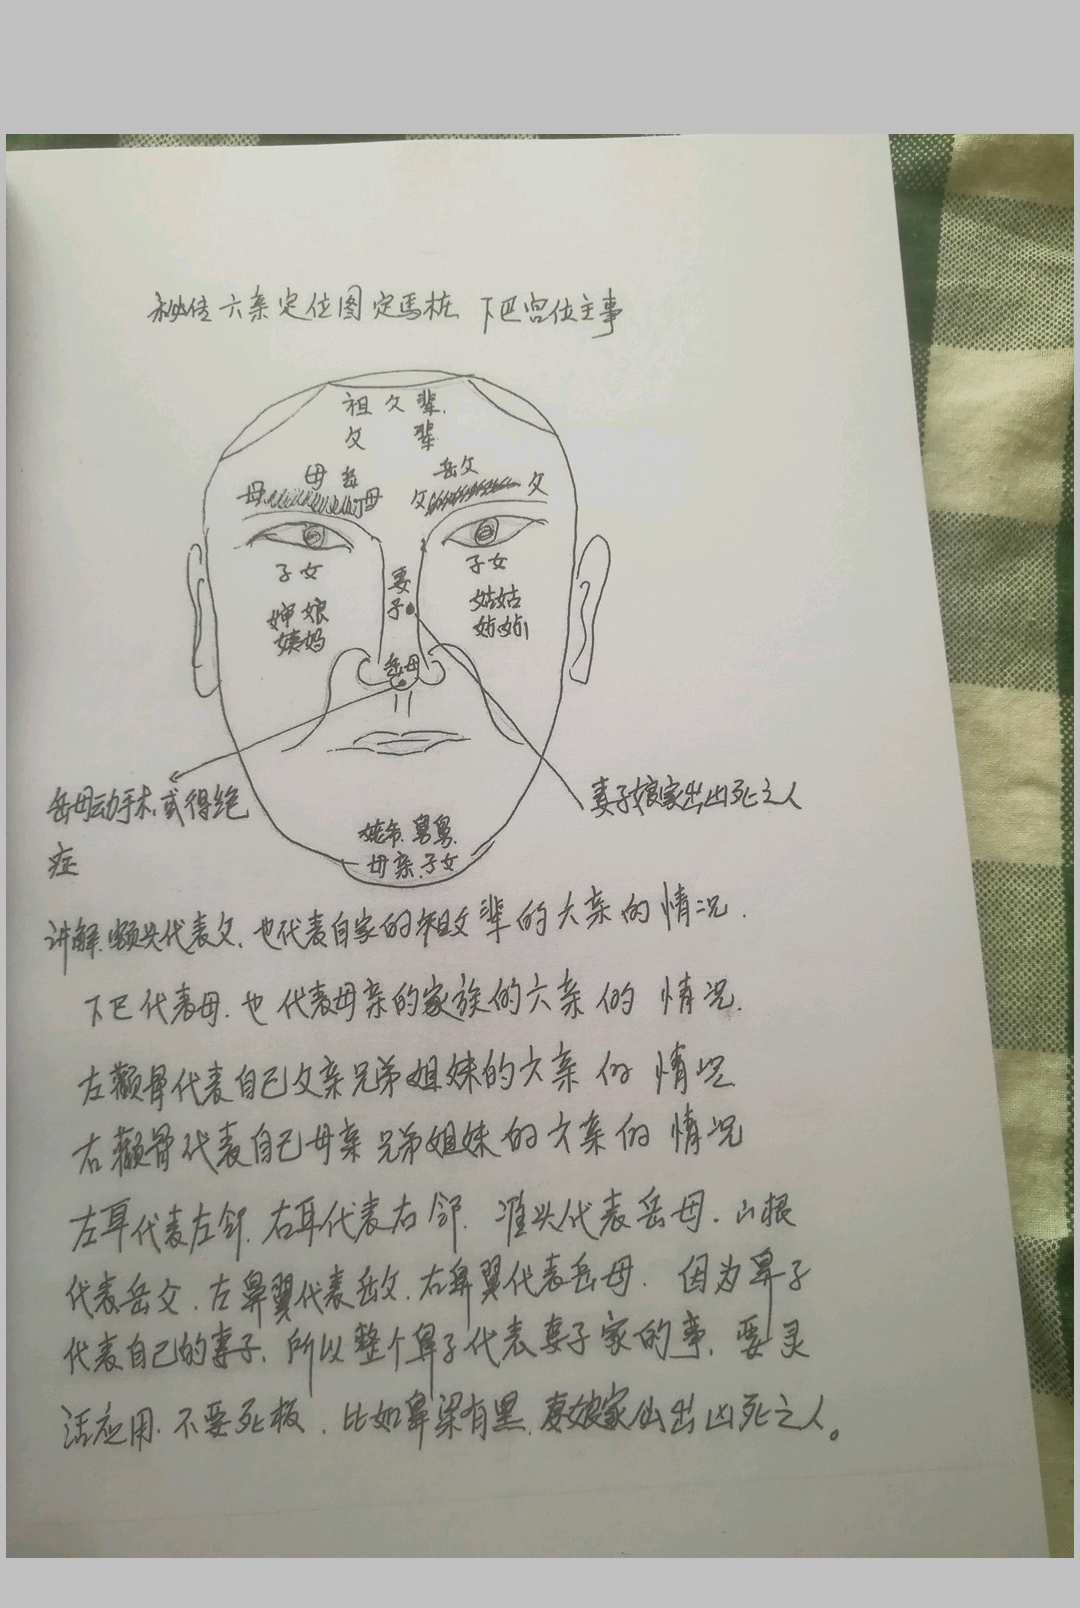 秘传六亲定位图定马桩 下巴宫位主事
祖父辈.
父 辈
母岳 岳父
母 母 父 父
子女 妻子 子女
婶娘 姑姑
姨妈
岳母
岳母动手术.或得绝
症
妻子娘家出凶死之人
姥爷.舅舅.
母亲.子女
讲解.额头代表父.也代表自家的祖父辈的六亲的情况.
下巴代表母.也代表母亲的家族的六亲的情况.
左颧骨代表自己父亲兄弟姐妹的六亲的情况
右颧骨代表自己母亲兄弟姐妹的六亲的情况
左耳代表左邻.右耳代表右邻.准头代表岳母.山根
代表岳父.左鼻翼代表岳父.右鼻翼代表岳母.因为鼻子
代表自己的妻子.所以整个鼻子代表妻子家的事.要灵
活应用.不要死板.比如鼻梁有黑.妻娘家出凶死之人。